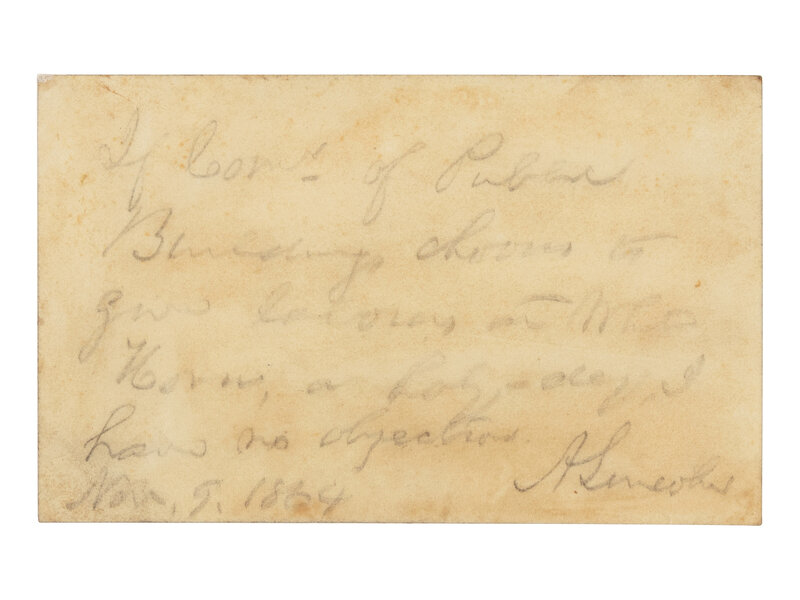 If Comr. of Public
Buildings chooses to
give laborers at White
House, a holy-day, I
have no objection.
A. Lincoln
Nov. 9. 1864